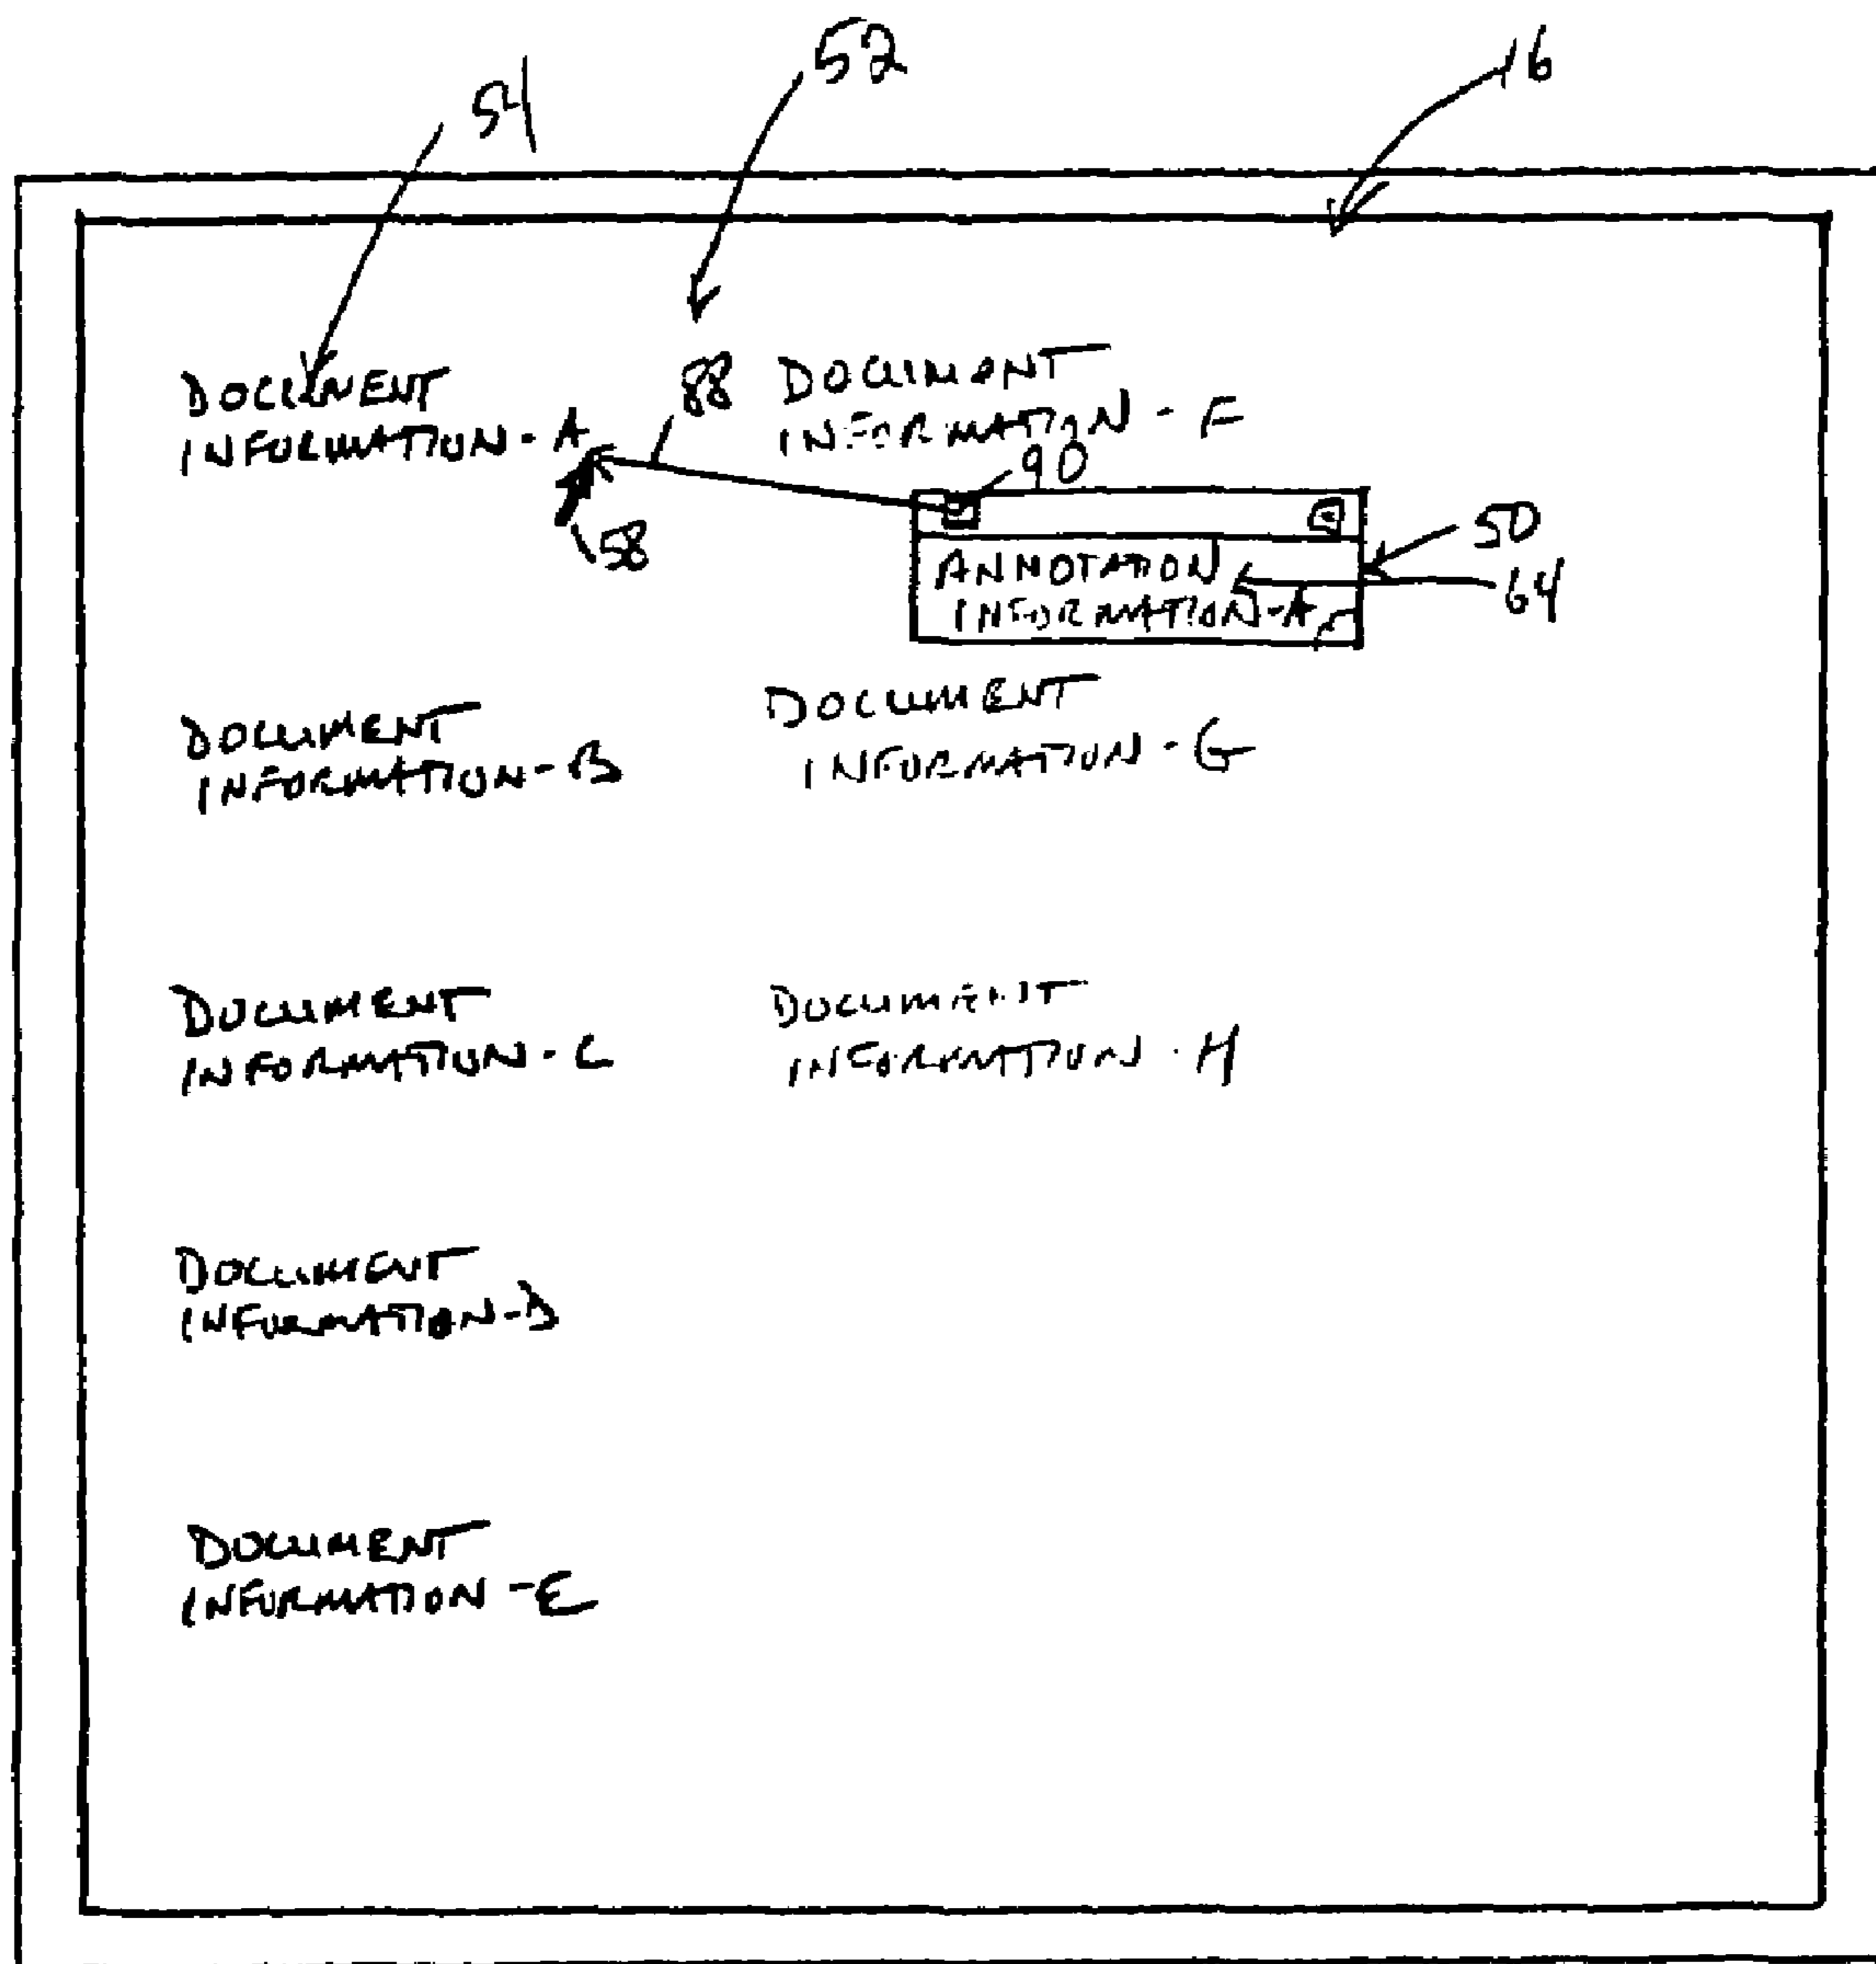 54
52
16
DOCUMENT
INFORMATION - A
88
DOCUMENT
INFORMATION - F
90
58
50
ANNOTATION
INFORMATION - A
64
DOCUMENT
INFORMATION - B
DOCUMENT
INFORMATION - G
DOCUMENT
INFORMATION - C
DOCUMENT
INFORMATION - H
DOCUMENT
INFORMATION - D
DOCUMENT
INFORMATION - E